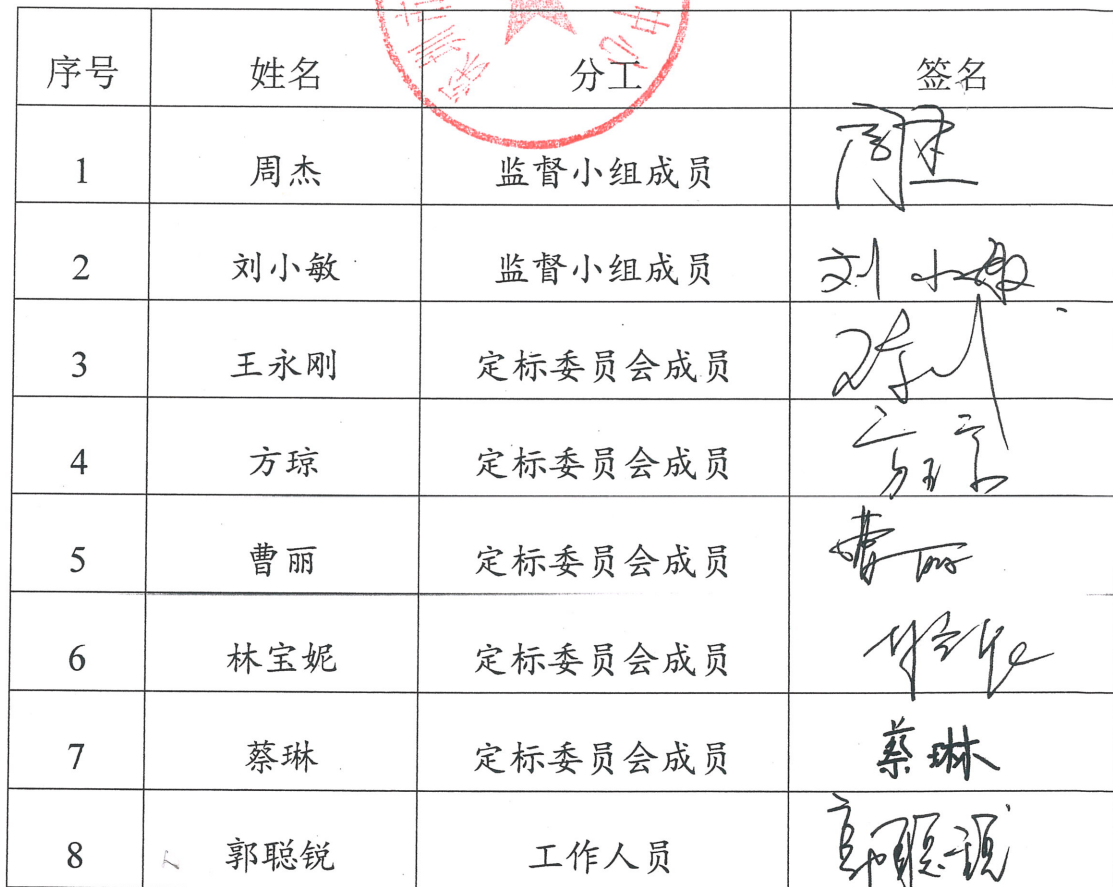 深圳市 中心
序号 姓名 分工 签名
1 周杰 监督小组成员
2 刘小敏 监督小组成员 刘小敏
3 王永刚 定标委员会成员
4 方琼 定标委员会成员 方琼
5 曹丽 定标委员会成员 曹丽
6 林宝妮 定标委员会成员 林宝妮
7 蔡琳 定标委员会成员 蔡琳
8 郭聪锐 工作人员 郭聪锐